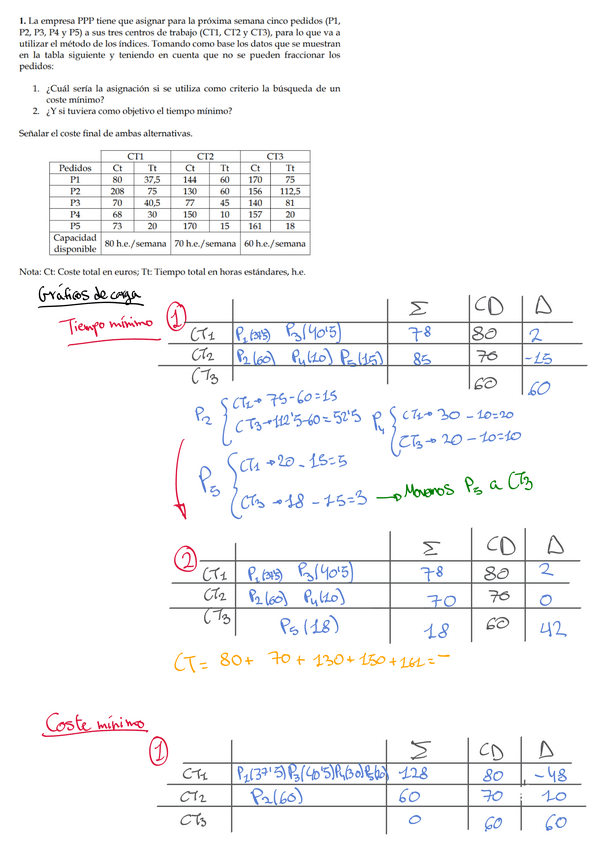 1. La empresa PPP tiene que asignar para la próxima semana cinco pedidos (P1,
P2, P3, P4 y P5) a sus tres centros de trabajo (CT1, CT2 y CT3), para lo que va a
utilizar el método de los índices. Tomando como base los datos que se muestran
en la tabla siguiente y teniendo en cuenta que no se pueden fraccionar los
pedidos:
1. ¿Cuál sería la asignación si se utiliza como criterio la búsqueda de un
coste mínimo?
2. ¿Y si tuviera como objetivo el tiempo mínimo?
Señalar el coste final de ambas alternativas.
CT1 CT2 CT3
Pedidos Ct Tt Ct Tt Ct Tt
P1 80 37,5 144 60 170 75
P2 208 75 130 60 156 112,5
P3 70 40,5 77 45 140 81
P4 68 30 150 10 157 20
P5 73 20 170 15 161 18
Capacidad
disponible 80 h.e./semana 70 h.e./semana 60 h.e./semana
Nota: Ct: Coste total en euros; Tt: Tiempo total en horas estándares, h.e.
Gráficos de carga
Tiempo mínimo 1 Σ CD Δ
CT1 P1(37'5) P3(40'5) 78 80 2
CT2 P2(60) P4(10) P5(15) 85 70 -15
CT3 60 60
P2 CT1→ 75-60=15 P4 CT1→ 30-10=20
CT3→112'5-60=52'5 CT3→ 20-10=10
P5 CT1→20-15=5
CT3→18-15=3 → Movemos P5 a CT3
2 Σ CD Δ
CT1 P1(37'5) P3(40'5) 78 80 2
CT2 P2(60) P4(10) 70 70 0
CT3 P5(18) 18 60 42
CT= 80+ 70+130+150+161=
Coste mínimo
1 Σ CD Δ
CT1 P1(37'5)P3(40'5)P4(30)P5(20) 128 80 -48
CT2 P2(60) 60 70 10
CT3 0 60 60